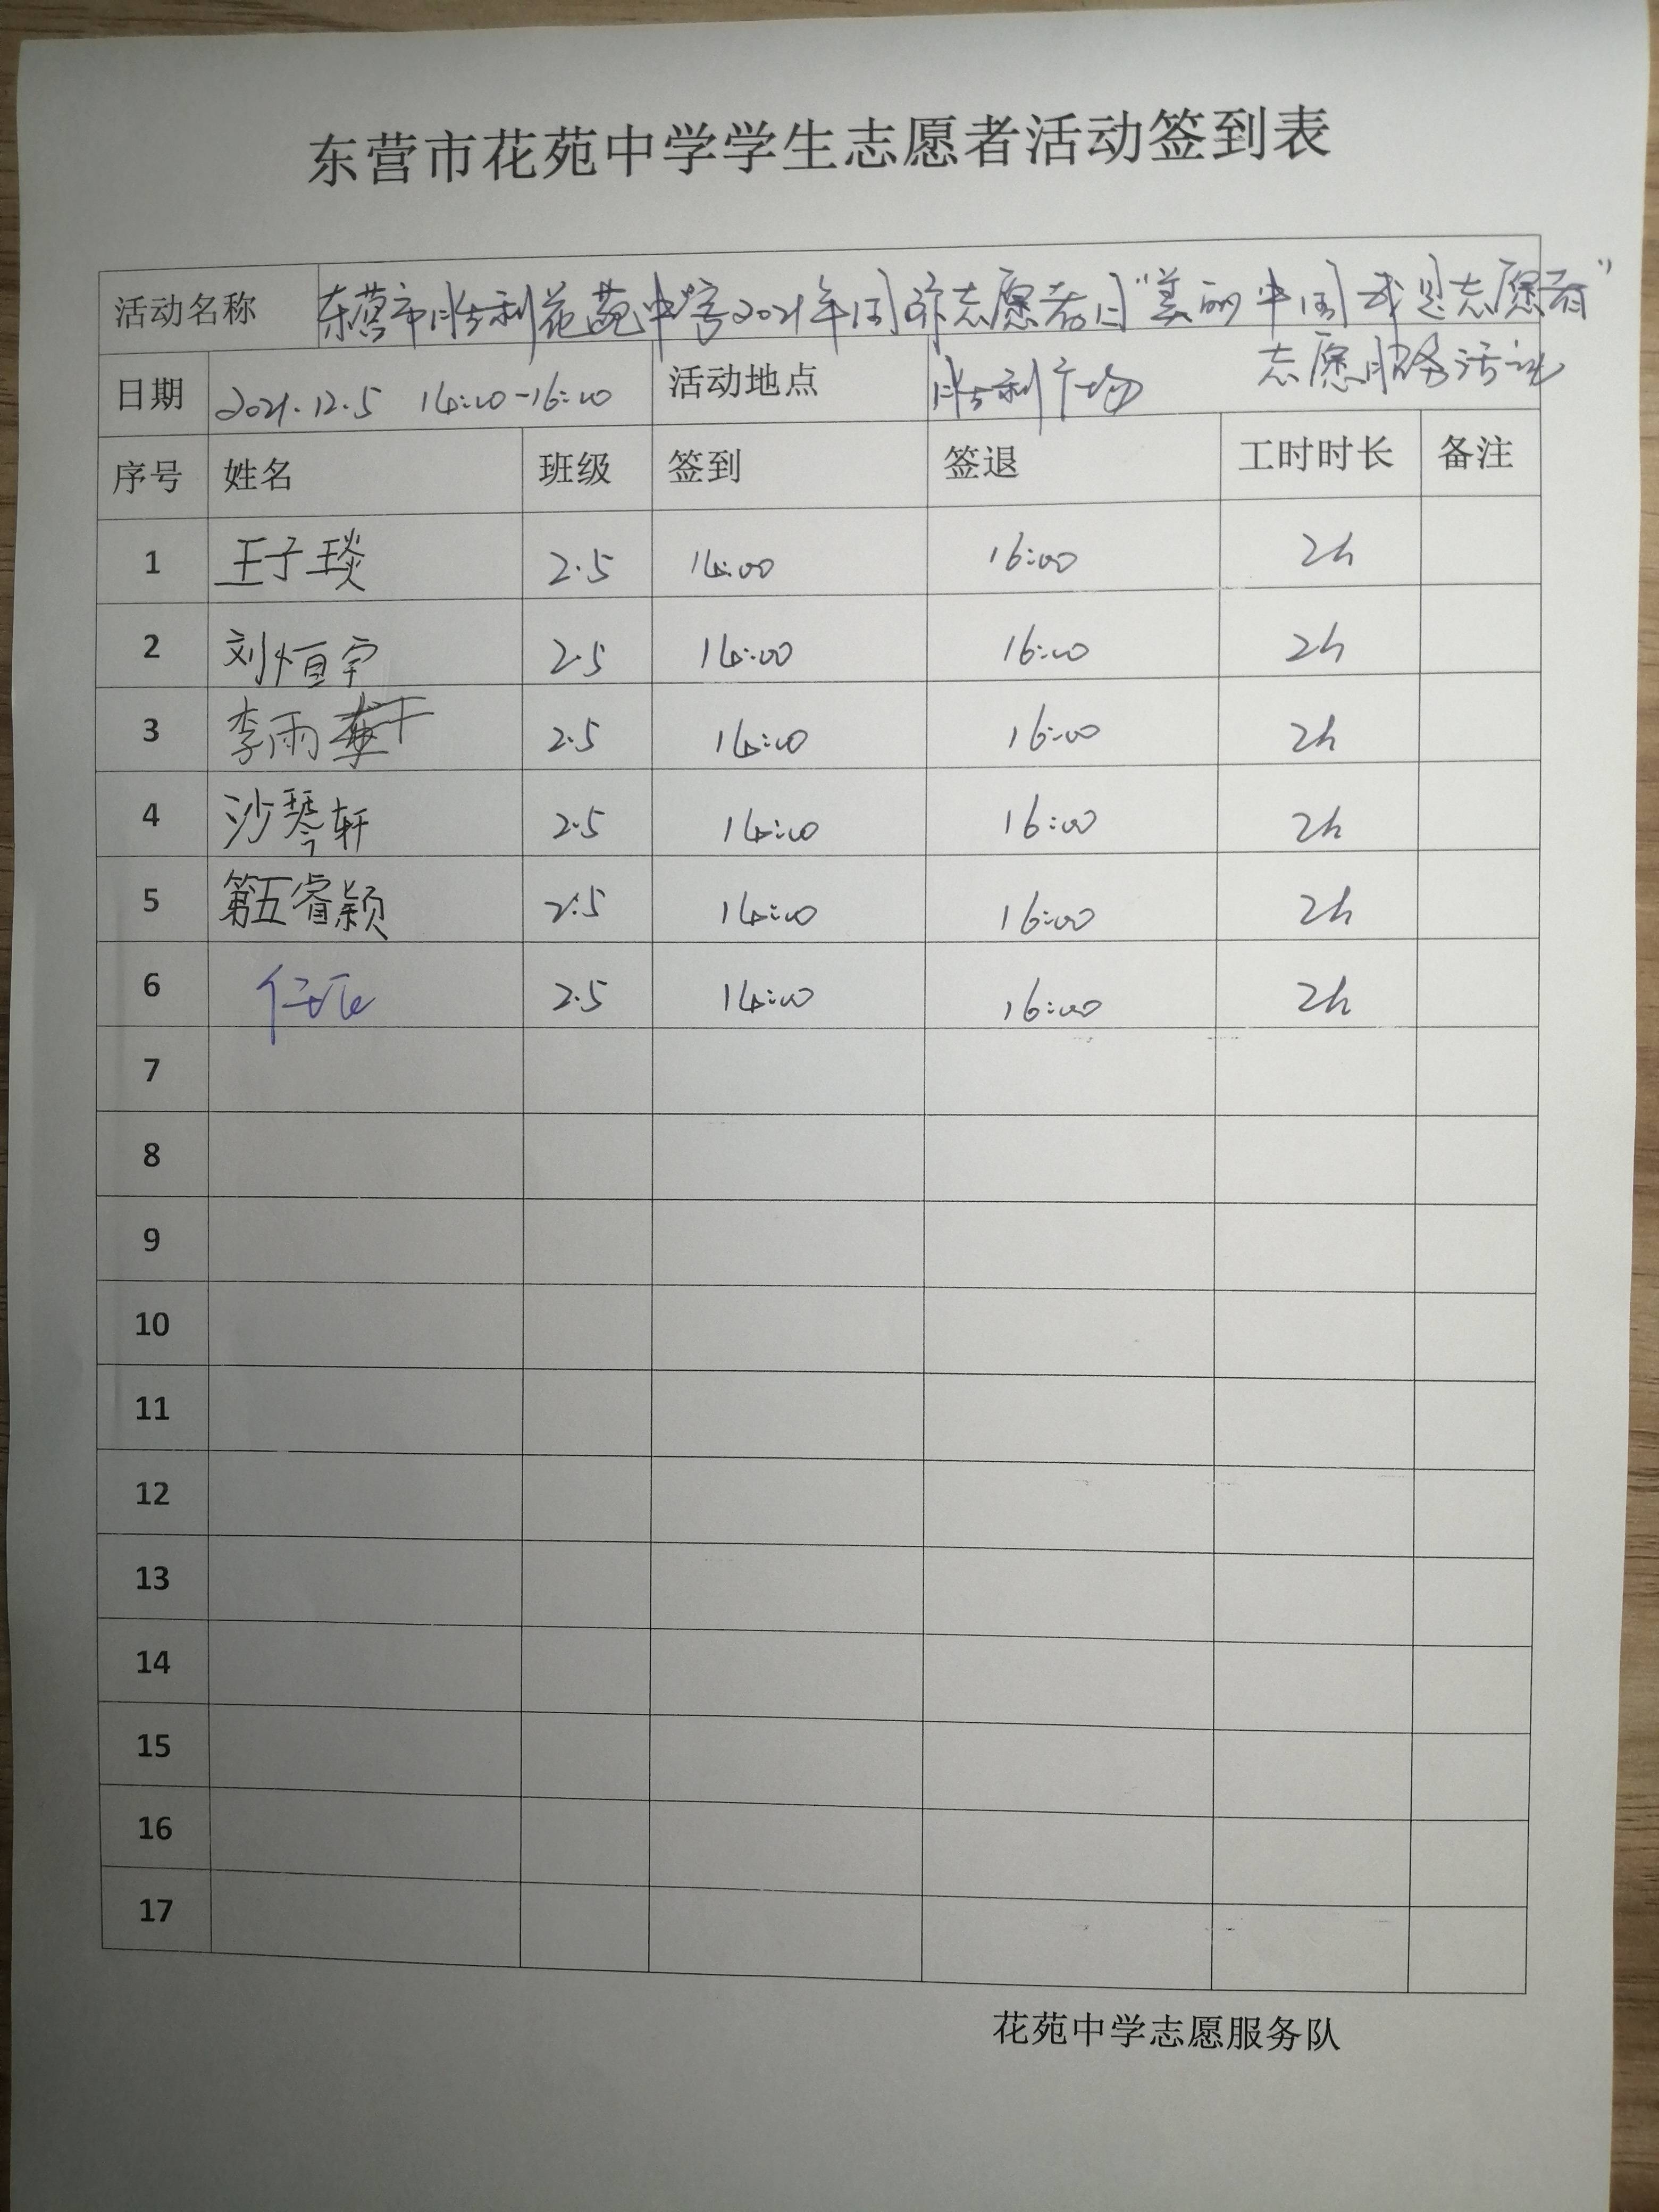 东营市花苑中学学生志愿者活动签到表
活动名称 东营市胜利花苑中学2021年国际志愿者日“美丽中国 我是志愿者”
志愿服务活动
日期 2021.12.5 14:00-16:00 活动地点 胜利广场
序号 姓名 班级 签到 签退 工时时长 备注
1 王子琰 2.5 14:00 16:00 2h
2 刘恒宇 2.5 14:00 16:00 2h
3 李雨 2.5 14:00 16:00 2h
4 沙琴轩 2.5 14:00 16:00 2h
5 第五睿颖 2.5 14:00 16:00 2h
6 2.5 14:00 16:00 2h
7
8
9
10
11
12
13
14
15
16
17
花苑中学志愿服务队